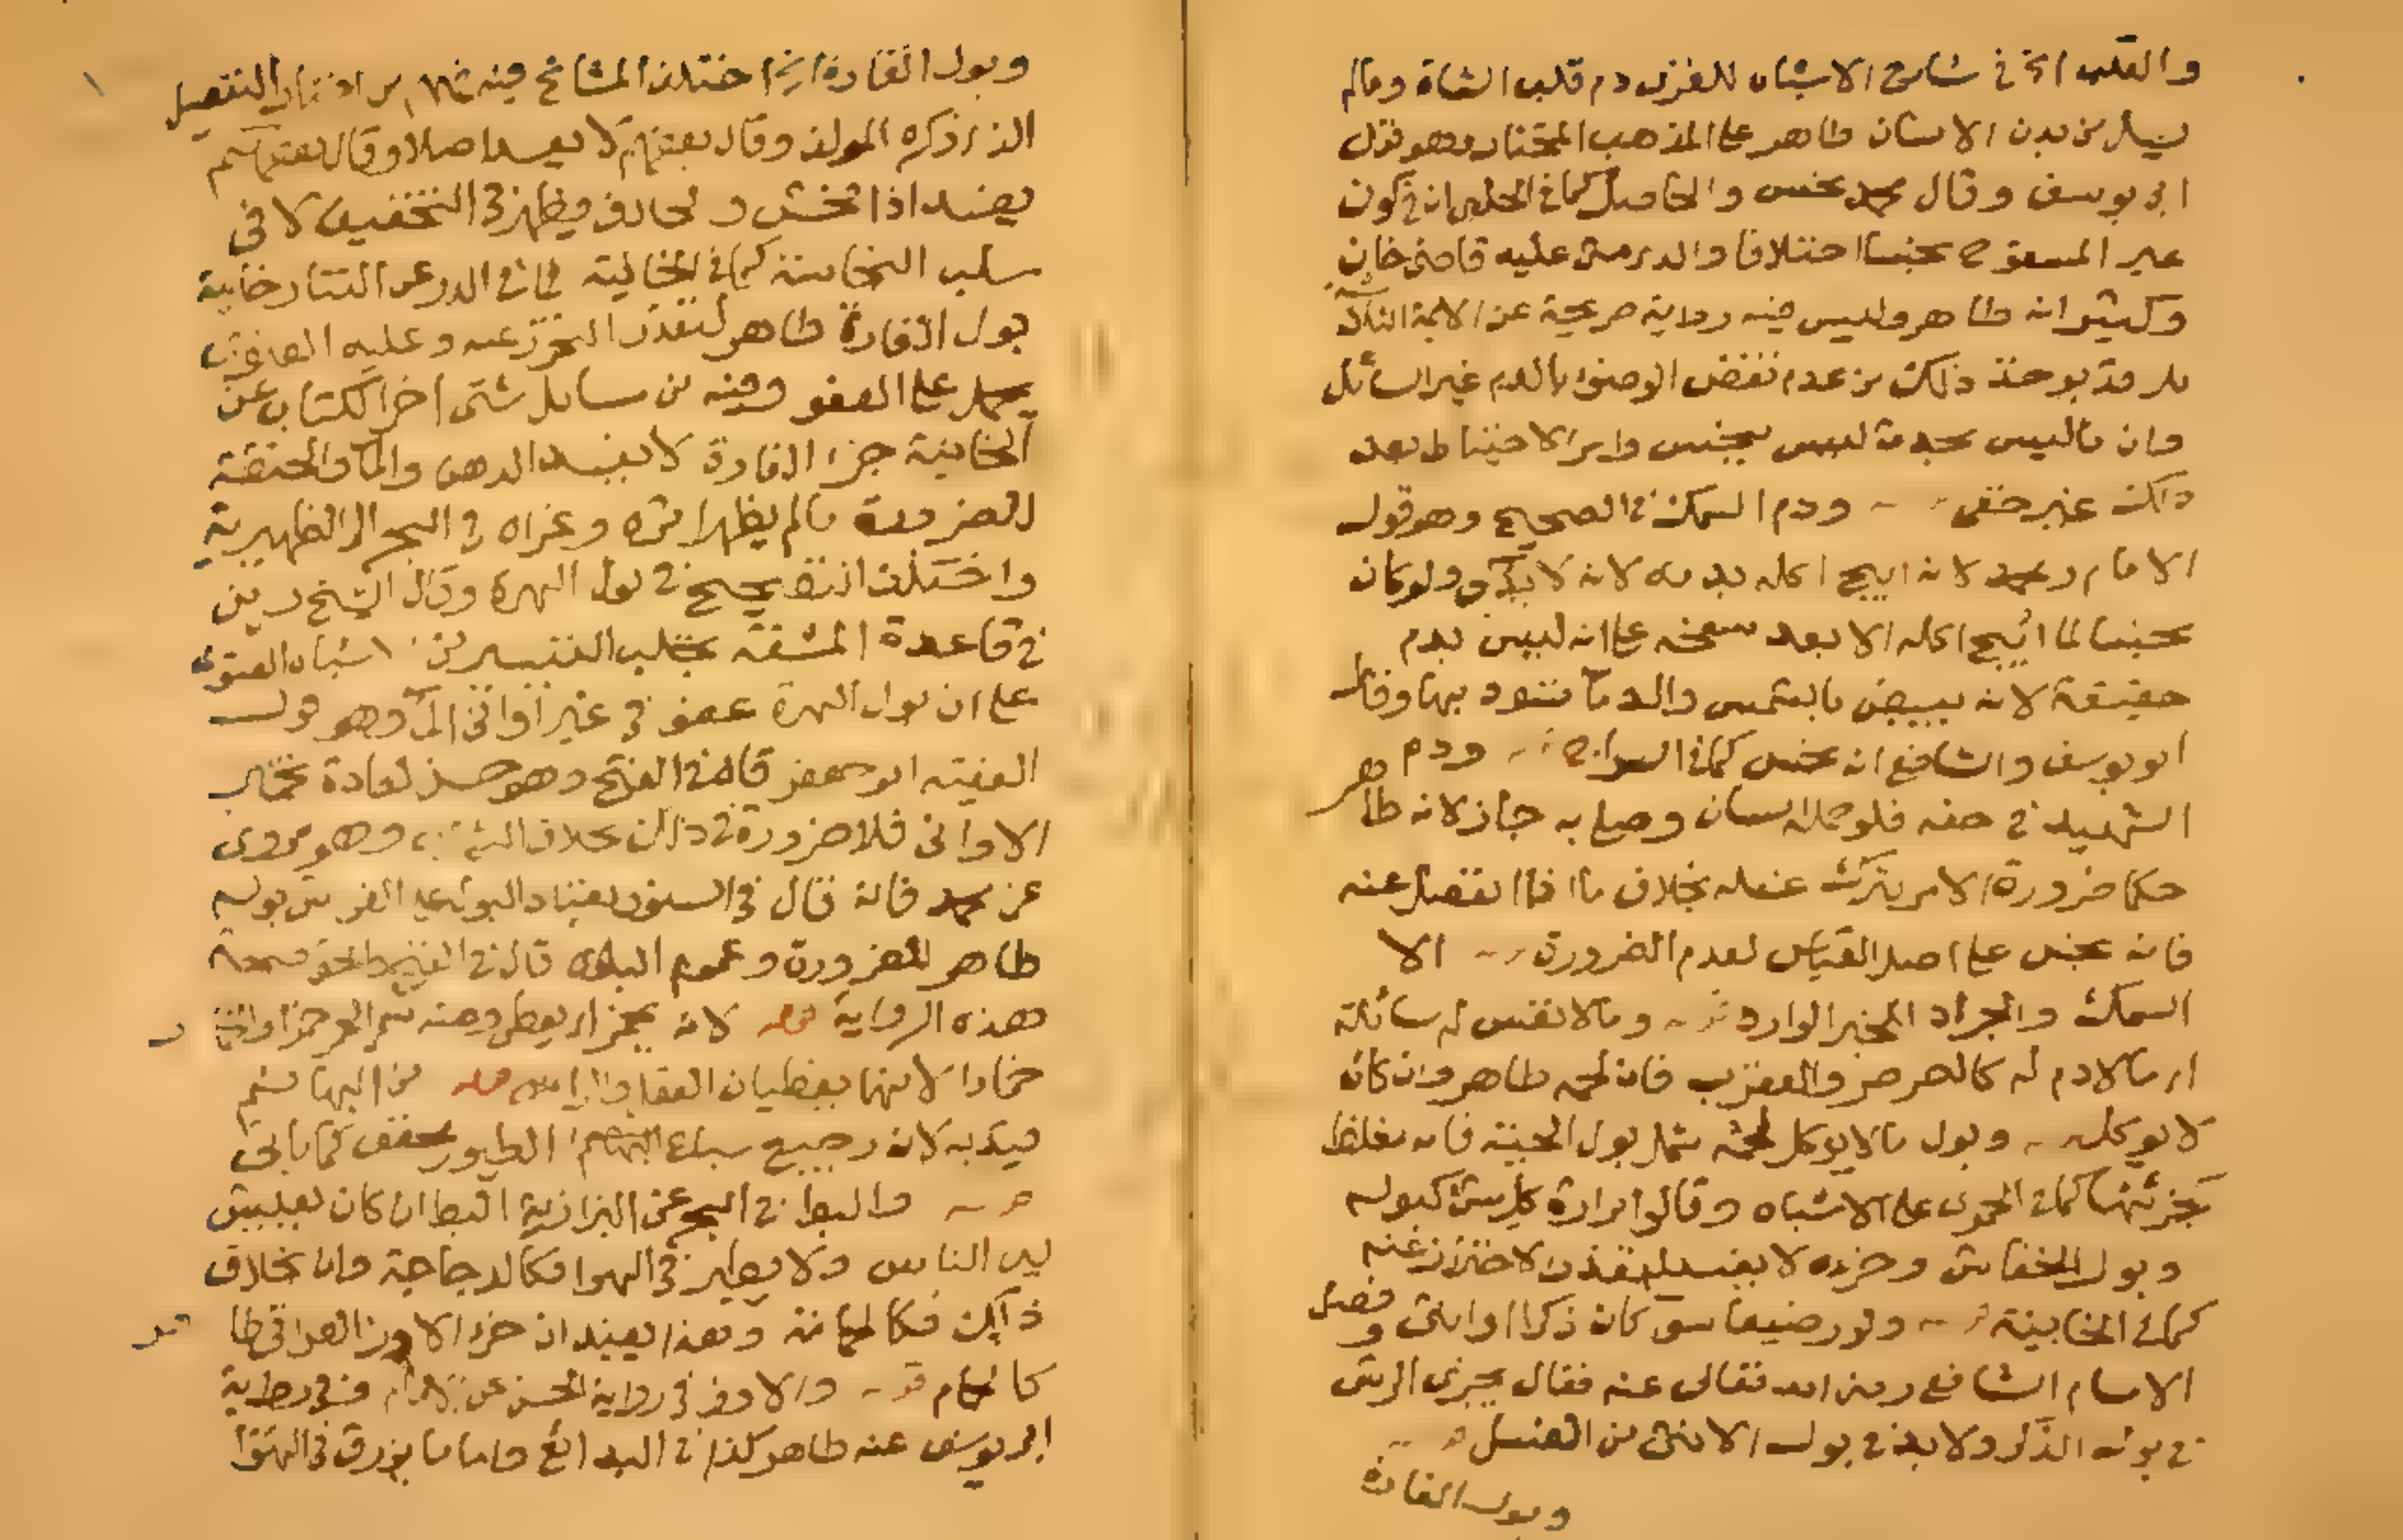 والقلب الخ في شارح الاشباه للغزى دم قلب الشاة ومالم
يسل من بدن الانسان طاهر على المذهب المختار وهو قول
ابى يوسف وقال محمد نجس والحاصل كما في الحلبى ان في كون
غير المسفوح نجسا اختلافا والذى مشى عليه قاضى خان
وكثير انه طاهر وليس فيه رواية صريحة عن الائمة الثلاثة
بل قد يوخذ ذلك من عدم نقض الوضوء بالدم غير السائل
وان ماليس بحدث ليس بنجس وامر الاحتياط بعد
ذلك غير خفى ودم السمك في الصحيح وهو قول
الامام ومحمد لانه ابيح اكله بدمه لانه لا يذكى ولو كان
نجسا لما ابيح اكله الا بعد سفحه على انه ليس بدم
حقيقة لانه يبيض بالشمس والدماء تسود بها وقال
ابو يوسف والشافعى انه نجس كما في السراج ودم
الشهيد في حقه فلو حمله انسان وصلى به جاز لانه طاهر
حكما ضرورة الامر بترك غسله بخلاف ما اذا انفصل عنه
فانه نجس على اصل القياس لعدم الضرورة الا
السمك والجراد للخبر الوارد ومالا نفس له سائلة
اى مالا دم له كالصرصر والعقرب فانه لحمه طاهر وان كان
لا يوكل وبول مالا يوكل لحمه شمل بول الحية فانه مغلظ
كخرئها كما في الحموى على الاشباه وقالوا مرارة كل شئ كبوله
وبول الخفاش وخرءه لا يفسد لتعذر الاحتراز عنه
كما في الخانية ولو رضيعا سواء كان ذكرا او انثى وفصل
الامام الشافعى رضى الله تعالى عنه فقال يجزى الرش
في بول الذكر ولا بد في بول الانثى من الغسل
وبول الفارة
وبول الفارة الخ اختلف المشايخ فيه التفصيل
الذى ذكره المولف وقال بعضهم لا يفسد اصلا وقال بعضهم
يفسد اذا فحش و فيظهر في التخفيف لا في
سلب النجاسة كما في الخانية في الدر عن التتارخانية
بول الفارة طاهر لتعذر التحرز عنه وعليه الفتوى
يحمل على العفو وفيه من مسايل شتى اخر الكتاب عن
الخانية خرء الفارة لا يفسد الدهن والماء والحنطة
للضرورة مالم يظهر اثره وعزاه في البحر الى الظهيرية
واختلف التصحيح في بول الهرة وقال الشيخ زين
في قاعدة المشقة تجلب التيسير من اشباه الفتوى
على ان بول الهرة عفو في غير اوانى الماء وهو قول
الفقيه ابو جعفر قال في الفتح وهو حسن لعادة تخمير
الاوانى فلا ضرورة في ذلك بخلاف الثياب وهو مروى
عن محمد فانه قال في السنور يعتاد البول على الفرش بوله
طاهر للضرورة وعموم البلوى قال في الفتح
هذه الرواية قوله لانه يخمر اى يغطى ومنه سمى الخمر خمرا
خمارا لانهما يغطيان العقل والراس قوله من البهائم
قيد به لان رجيع سباع الطيور مخفف كما ياتى
والبط في البحر عن البزازية البط ان كان يعيش
بين الناس ولا يطير في الهوا فكالدجاجة وان بخلاف
ذلك فكالحمامة وهذا يفيد ان خرء الاوز العراقى طاهر
كالحمام والاوز في رواية الحسن عن الامام وفي رواية
ابى يوسف عنه طاهر كذا في البدائع واما ما يزرق في الهوا